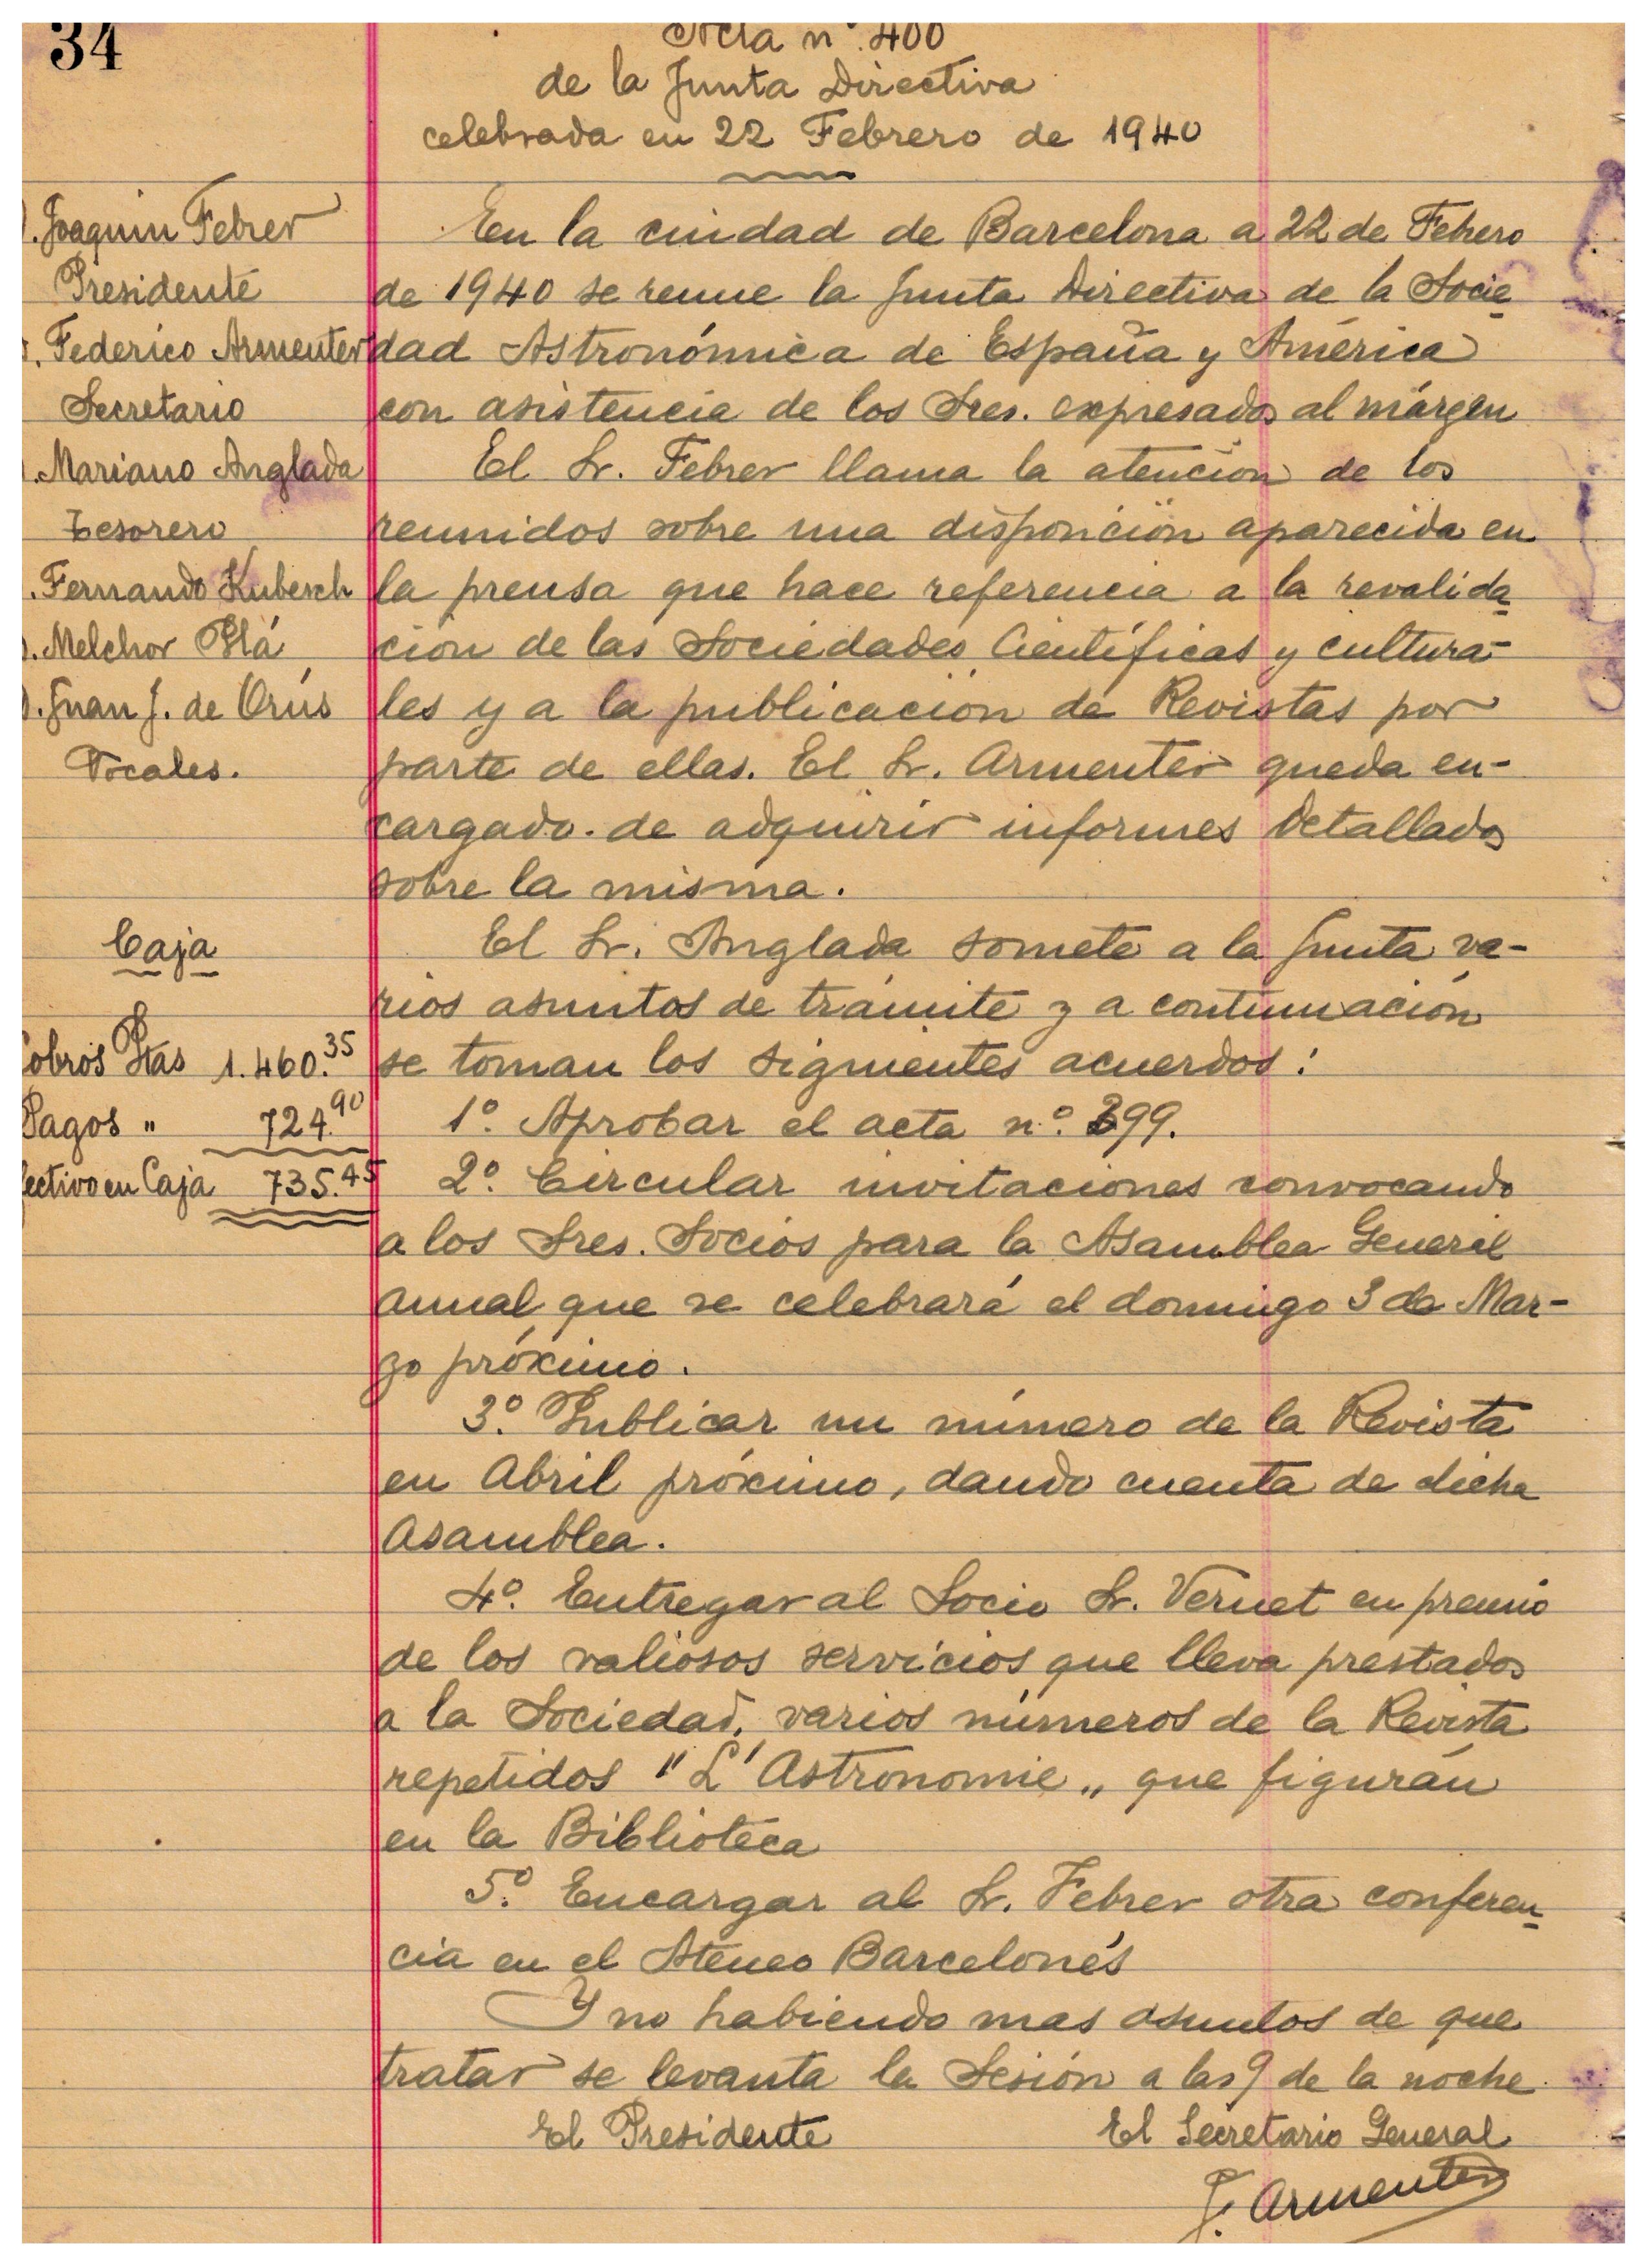 34
Acta nº. 400
de la Junta Directiva
celebrada en 22 Febrero de 1940
. Joaquin Febrer
Presidente
. Federico Armenter
Secretario
. Mariano Anglada
Tesorero
. Fernando Kubesch
. Melchor Plá
. Juan J. de Orús
Vocales.
En la ciudad de Barcelona a 22 de Febrero
de 1940 se reune la Junta Directiva de la Socie-
dad Astronómica de España y América
con asistencia de los Sres. expresados al márgen
El Sr. Febrer llama la atención de los
reunidos sobre una disposición aparecida en
la prensa que hace referencia a la revalida-
ción de las Sociedades Científicas y cultura-
les y a la publicación de Revistas por
parte de ellas. El Sr. Armenter queda en-
cargado de adquirir informes detallados
sobre la misma.
El Sr. Anglada somete a la Junta va-
rios asuntos de trámite y a continuación
se toman los siguientes acuerdos:
Caja
obros Ptas 1.460.35
Pagos " 724.90
fectivo en Caja 735.45
1º. Aprobar el acta nº. 399.
2º. Circular invitaciones convocando
a los Sres. Socios para la Asamblea General
anual que se celebrará el domingo 3 de Mar-
zo próximo.
3º. Publicar un número de la Revista
en Abril próximo, dando cuenta de dicha
Asamblea.
4º. Entregar al Socio Sr. Vernet en premio
de los valiosos servicios que lleva prestados
a la Sociedad, varios números de la Revista
repetidos "L'Astronomie" que figuran
en la Biblioteca
5º. Encargar al Sr. Febrer otra conferen-
cia en el Ateneo Barcelonés
Y no habiendo mas asuntos de que
tratar se levanta la Sesión a las 9 de la noche.
El Presidente El Secretario General
F. Armenter